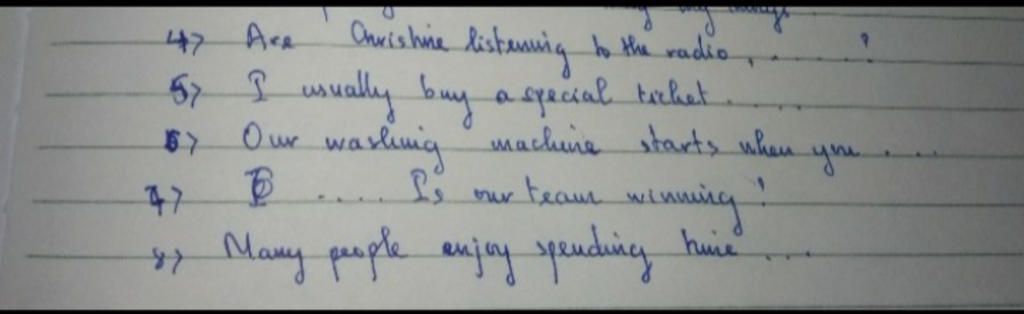 4> Are Christine listening to the radio, ......?
5> I usually buy a special ticket.....
6> Our washing machine starts when you ....
7> .... Is our team winning!
8> Many people enjoy spending time ...